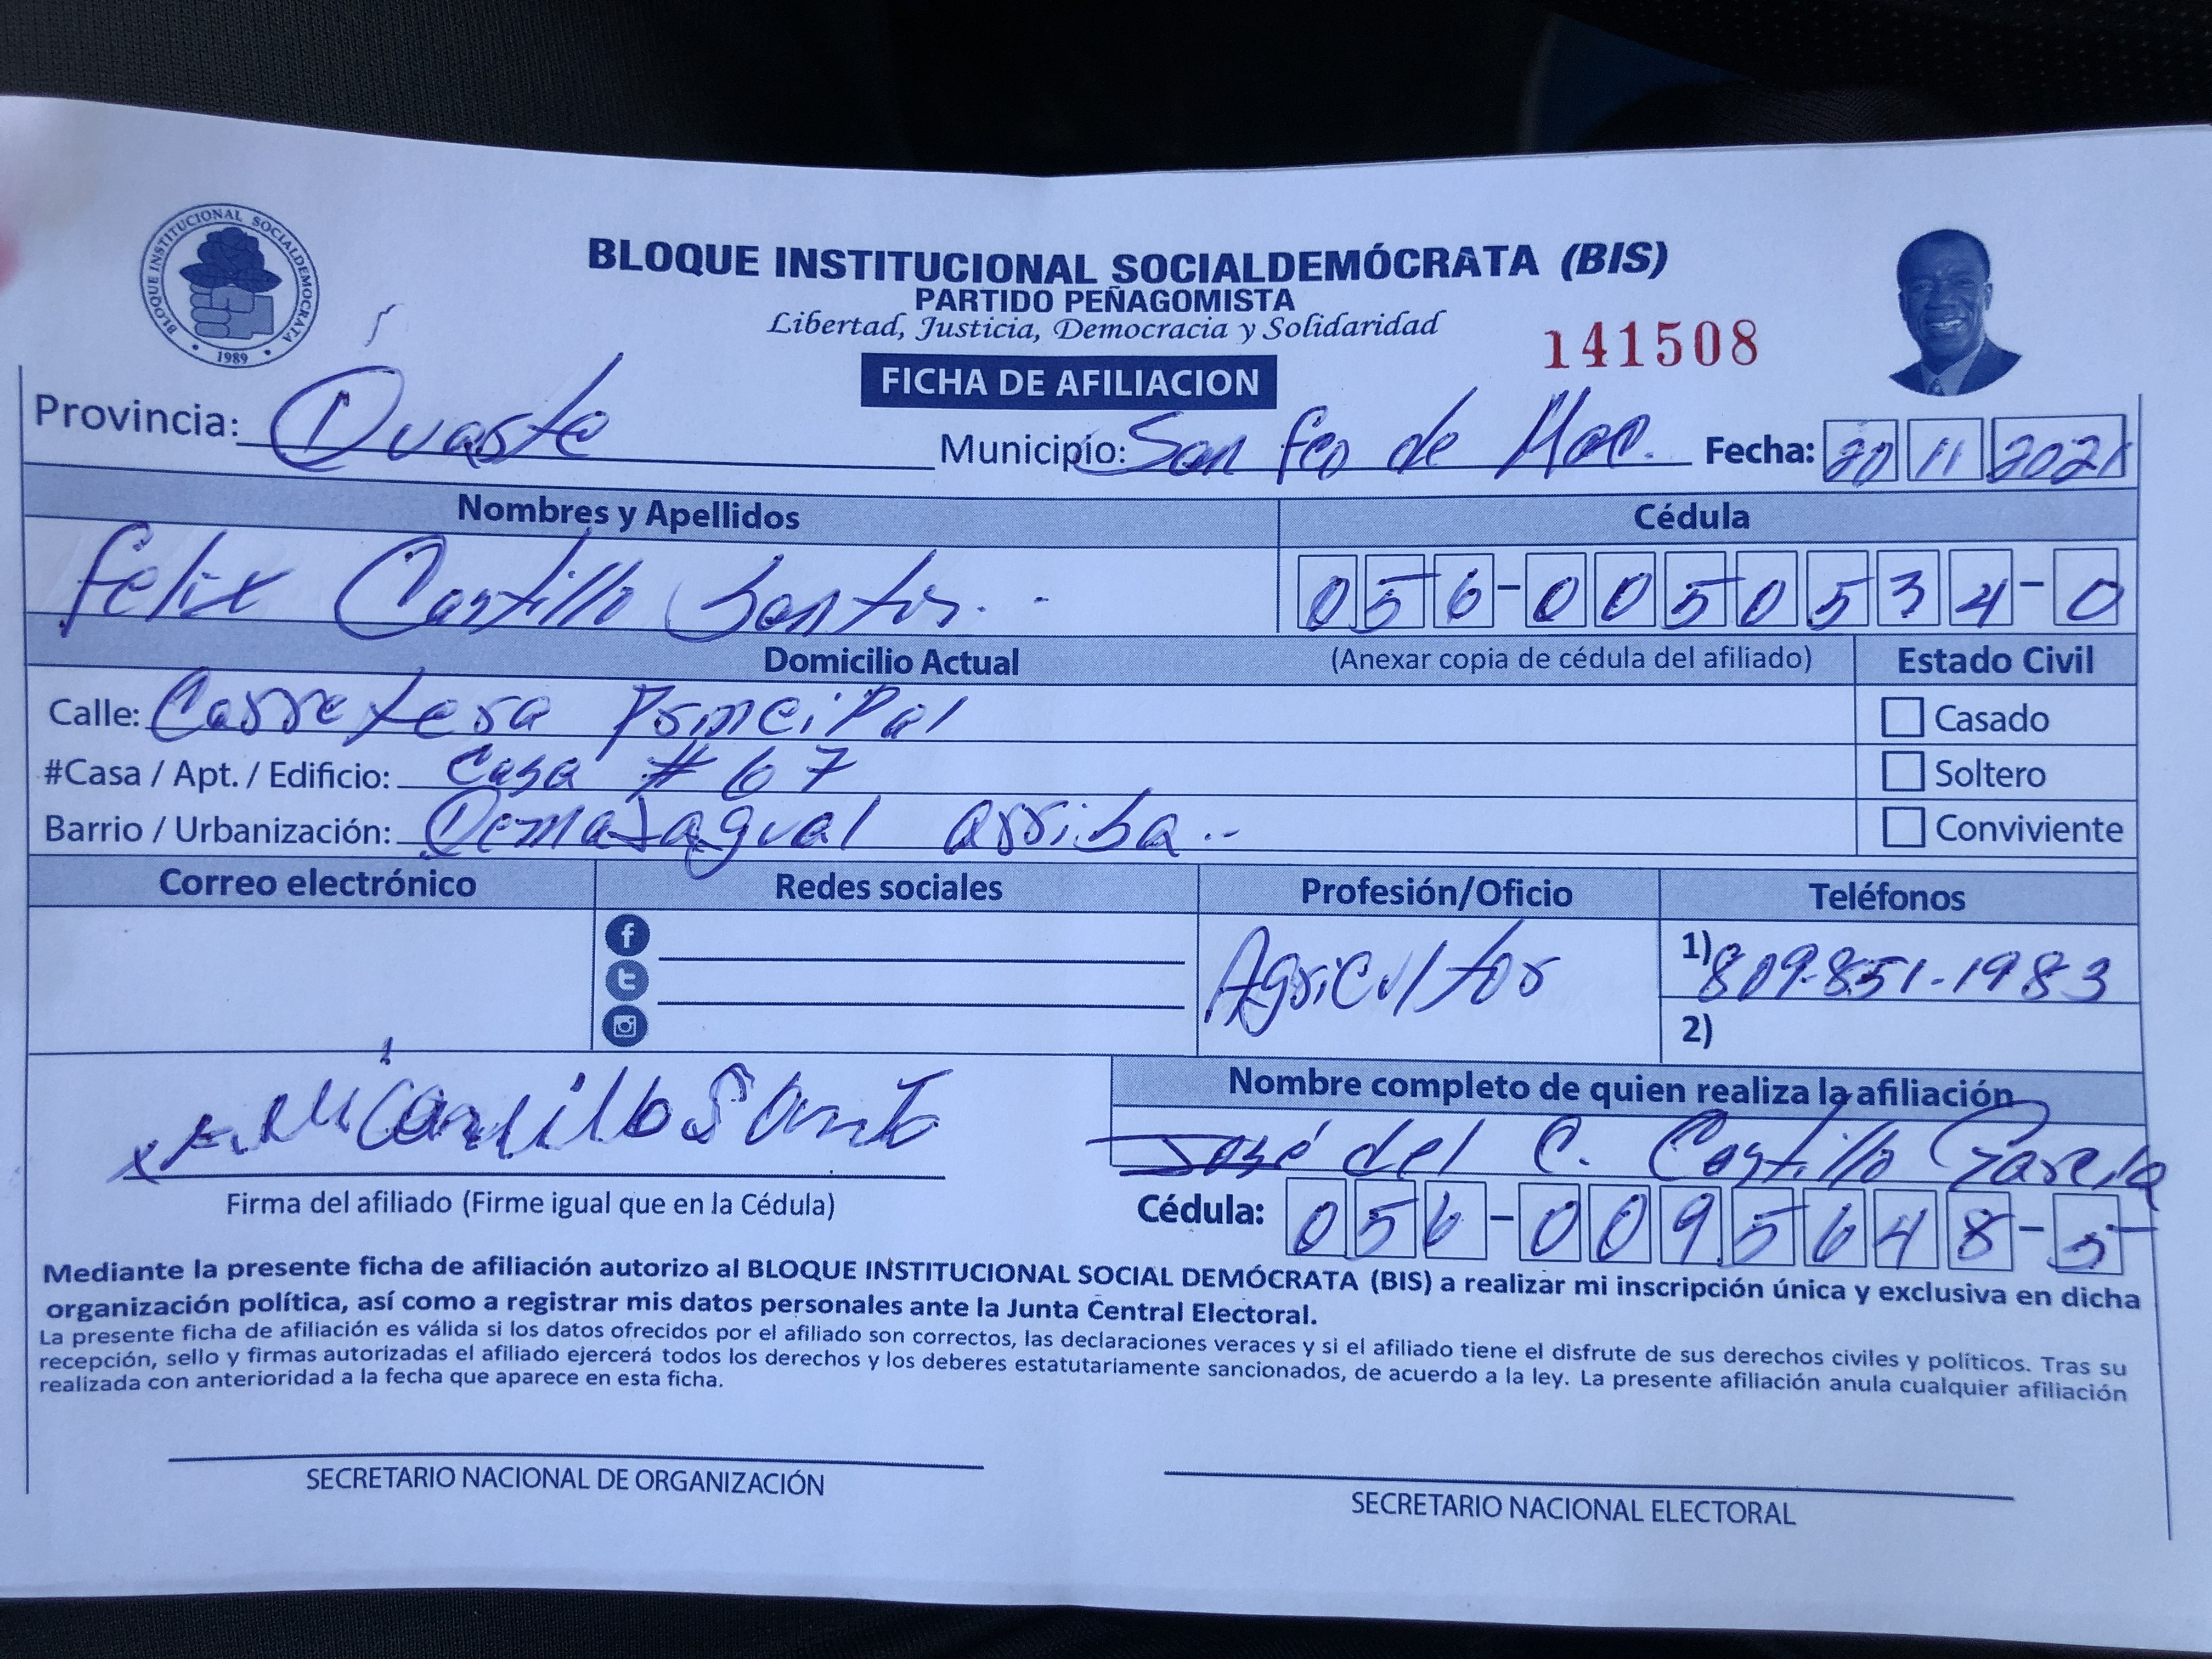 BLOQUE INSTITUCIONAL SOCIALDEMOCRATA
1989
BLOQUE INSTITUCIONAL SOCIALDEMÓCRATA (BIS)
PARTIDO PEÑAGOMISTA
Libertad, Justicia, Democracia y Solidaridad
141508
FICHA DE AFILIACION
Provincia: Duarte Municipio: San Fco de Mac. Fecha: 20 11 2021
Nombres y Apellidos Cédula
Felix Castillo Santos.. 056-0050534-0
Domicilio Actual (Anexar copia de cédula del afiliado) Estado Civil
Calle: Carretera Principal Casado
#Casa / Apt. / Edificio: Casa # 67 Soltero
Barrio / Urbanización: Demajagual arriba.. Conviviente
Correo electrónico Redes sociales Profesión/Oficio Teléfonos
Agricultor 1) 809-851-1983
2)
Nombre completo de quien realiza la afiliación
José del C. Castillo Garcia
Firma del afiliado (Firme igual que en la Cédula) Cédula: 056-0095648-5
Mediante la presente ficha de afiliación autorizo al BLOQUE INSTITUCIONAL SOCIAL DEMÓCRATA (BIS) a realizar mi inscripción única y exclusiva en dicha
organización política, así como a registrar mis datos personales ante la Junta Central Electoral.
La presente ficha de afiliación es válida si los datos ofrecidos por el afiliado son correctos, las declaraciones veraces y si el afiliado tiene el disfrute de sus derechos civiles y políticos. Tras su
recepción, sello y firmas autorizadas el afiliado ejercerá todos los derechos y los deberes estatutariamente sancionados, de acuerdo a la ley. La presente afiliación anula cualquier afiliación
realizada con anterioridad a la fecha que aparece en esta ficha.
SECRETARIO NACIONAL DE ORGANIZACIÓN SECRETARIO NACIONAL ELECTORAL